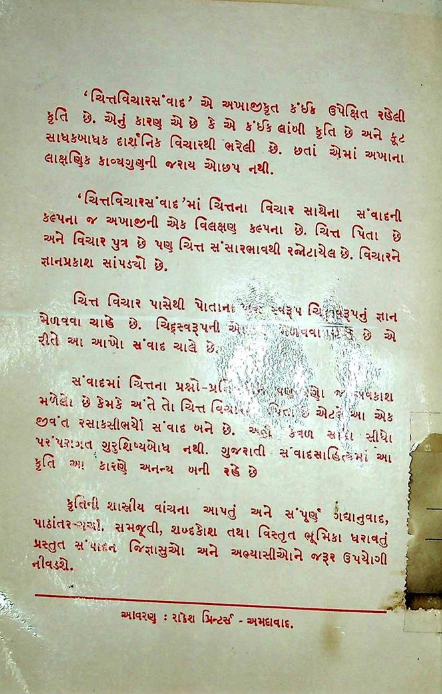 ‘ચિત્તવિચારસંવાદ’ એ અખાજીકૃત કંઈક ઉપેક્ષિત રહેલી
કૃતિ છે. એનું કારણ એ છે કે એ કંઈક લાંબી કૃતિ છે અને કૂટ
સાધકબાધક દાર્શનિક વિચારથી ભરેલી છે. છતાં એમાં અખાના
લાક્ષણિક કાવ્યગુણની જરાય ઓછપ નથી.
‘ચિત્તવિચારસંવાદ’માં ચિત્તના વિચાર સાથેના સંવાદની
કલ્પના જ અખાજીની એક વિલક્ષણ કલ્પના છે. ચિત્ત પિતા છે
અને વિચાર પુત્ર છે પણ ચિત્ત સંસારભાવથી રજોટાયેલ છે. વિચારને
જ્ઞાનપ્રકાશ સાંપડ્યો છે.
ચિત્ત વિચાર પાસેથી પોતાના સ્વરૂપ જ્ઞાન
મેળવવા ચાહે છે. ચિદ્રૂસ્વરૂપની છે એ
રીતે આ આખો સંવાદ ચાલે છે.
સંવાદમાં ચિત્તના પ્રશ્નો-પ્રતિ પણ જ અવકાશ
મળેલો છે કેમકે અંતે તો ચિત્ત પિતા છે એટલે આ એક
જીવંત રસાકસીભર્યો સંવાદ બને છે. અહીં કેવળ સાદો સીધો
પરંપરાગત ગુરુશિષ્યબોધ નથી. ગુજરાતી સંવાદસાહિત્યમાં આ
કૃતિ આ કારણે અનન્ય બની રહે છે
કૃતિની શાસ્ત્રીય વાંચના આપતું અને સંપૂર્ણ ગદ્યાનુવાદ,
પાઠાંતરચર્ચા, સમજૂતી, શબ્દકોશ તથા વિસ્તૃત ભૂમિકા ધરાવતું
પ્રસ્તુત સંપાદન જિજ્ઞાસુઓ અને અભ્યાસીઓને જરૂર ઉપયોગી
નીવડશે.
આવરણ : રાકેશ પ્રિન્ટર્સ - અમદાવાદ.